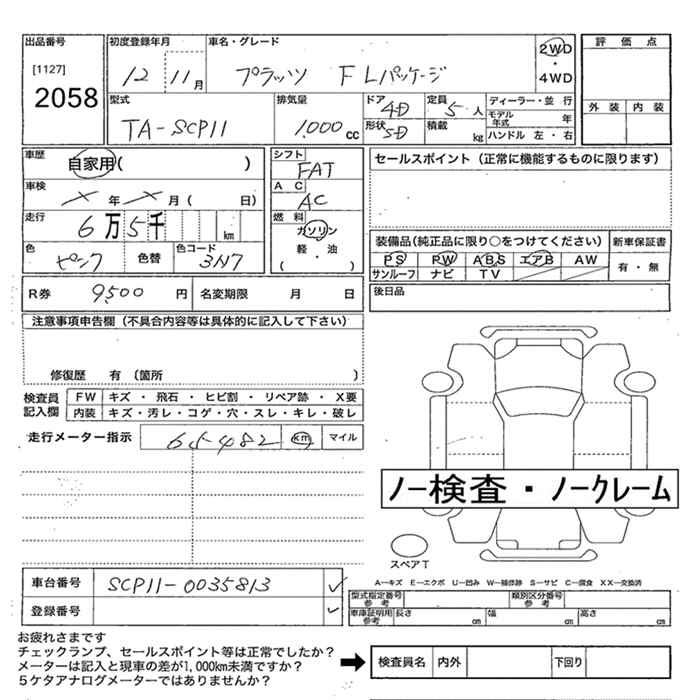 出品番号 初度登録年月 車名・グレード 評価点
[1127] 2058 12年 11月 プラッツ F Lパッケージ 2WD・4WD
外装 内装
型式 排気量 ドア 4D 定員 5人 ディーラー・並行
TA-SCP11 1,000cc 形状 5D 積載 kg モデル年式 年
ハンドル 左・右
車歴 自家用( ) シフト FAT セールスポイント(正常に機能するものに限ります)
車検 × 年 × 月( 日) AC AC
走行 6万5千 km 燃料 ガソリン 軽・油 ( )
装備品(純正品に限り○をつけてください) 新車保証書
色 ピンク 色替 色コード 3N7 PS PW ABS エアB AW 有・無
サンルーフ ナビ TV
R券 9,500円 名変期限 月 日 後日品
注意事項申告欄(不具合内容等は具体的に記入して下さい)
修復歴 有(箇所 )
検査員記入欄 FW キズ・飛石・ヒビ割・リペア跡・X要
内装 キズ・汚レ・コゲ・穴・スレ・キレ・破レ
走行メーター指示 65482 km マイル
ノー検査・ノークレーム
スペアT
車台番号 SCP11-0035813
登録番号
A-キズ E-エクボ U-凹み W-補修跡 S-サビ C-腐食 XX-交換済
型式指定番号 参考 類別区分番号 参考
車庫証明用 参考 長さ cm 幅 cm 高さ cm
お疲れさまです
チェックランプ、セールスポイント等は正常でしたか?
メーターは記入と現車の差が1,000km未満ですか?
5ケタアナログメーターではありませんか?
➡ 検査員名 内外 下回り